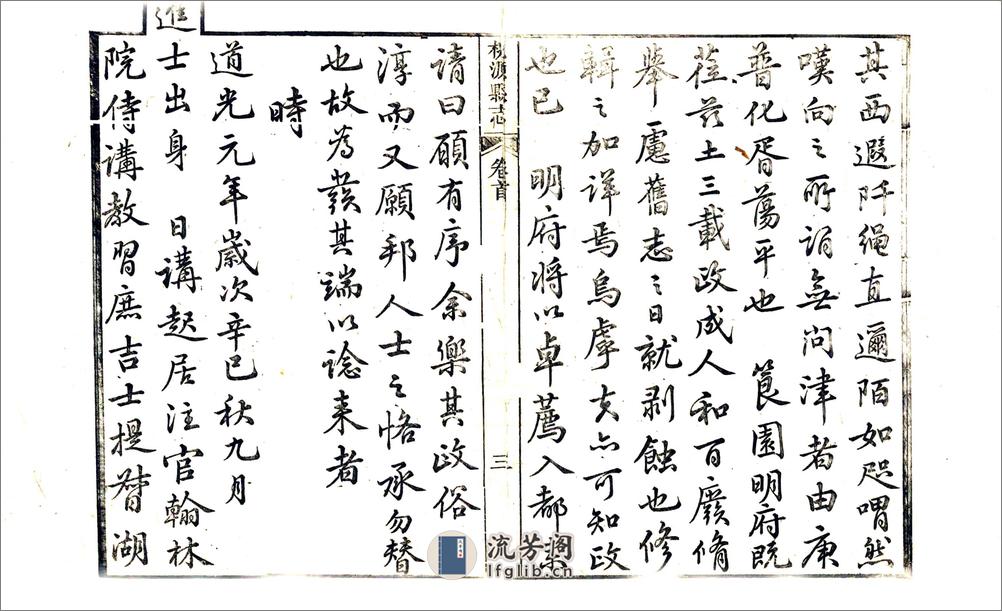 其西遐阡繩直邇陌如咫喟然
嘆向之所謂無問津者由庚
普化胥蕩平也　筤園明府既
莅茲土三載政成人和百廢脩
舉慮舊志之日就剥蝕也修
輯之加詳焉烏虖夫亦可知政
也已　明府將以卓薦入都索
桃源縣志
卷首
三
請曰願有序余樂其政俗
淳而又願邦人士之恪承勿替
也故為發其端以諗来者
時
道光元年歲次辛巳秋九月
進
士出身　日講起居注官翰林
院侍講教習庶吉士提督湖
流芳阁
lfglib.cn